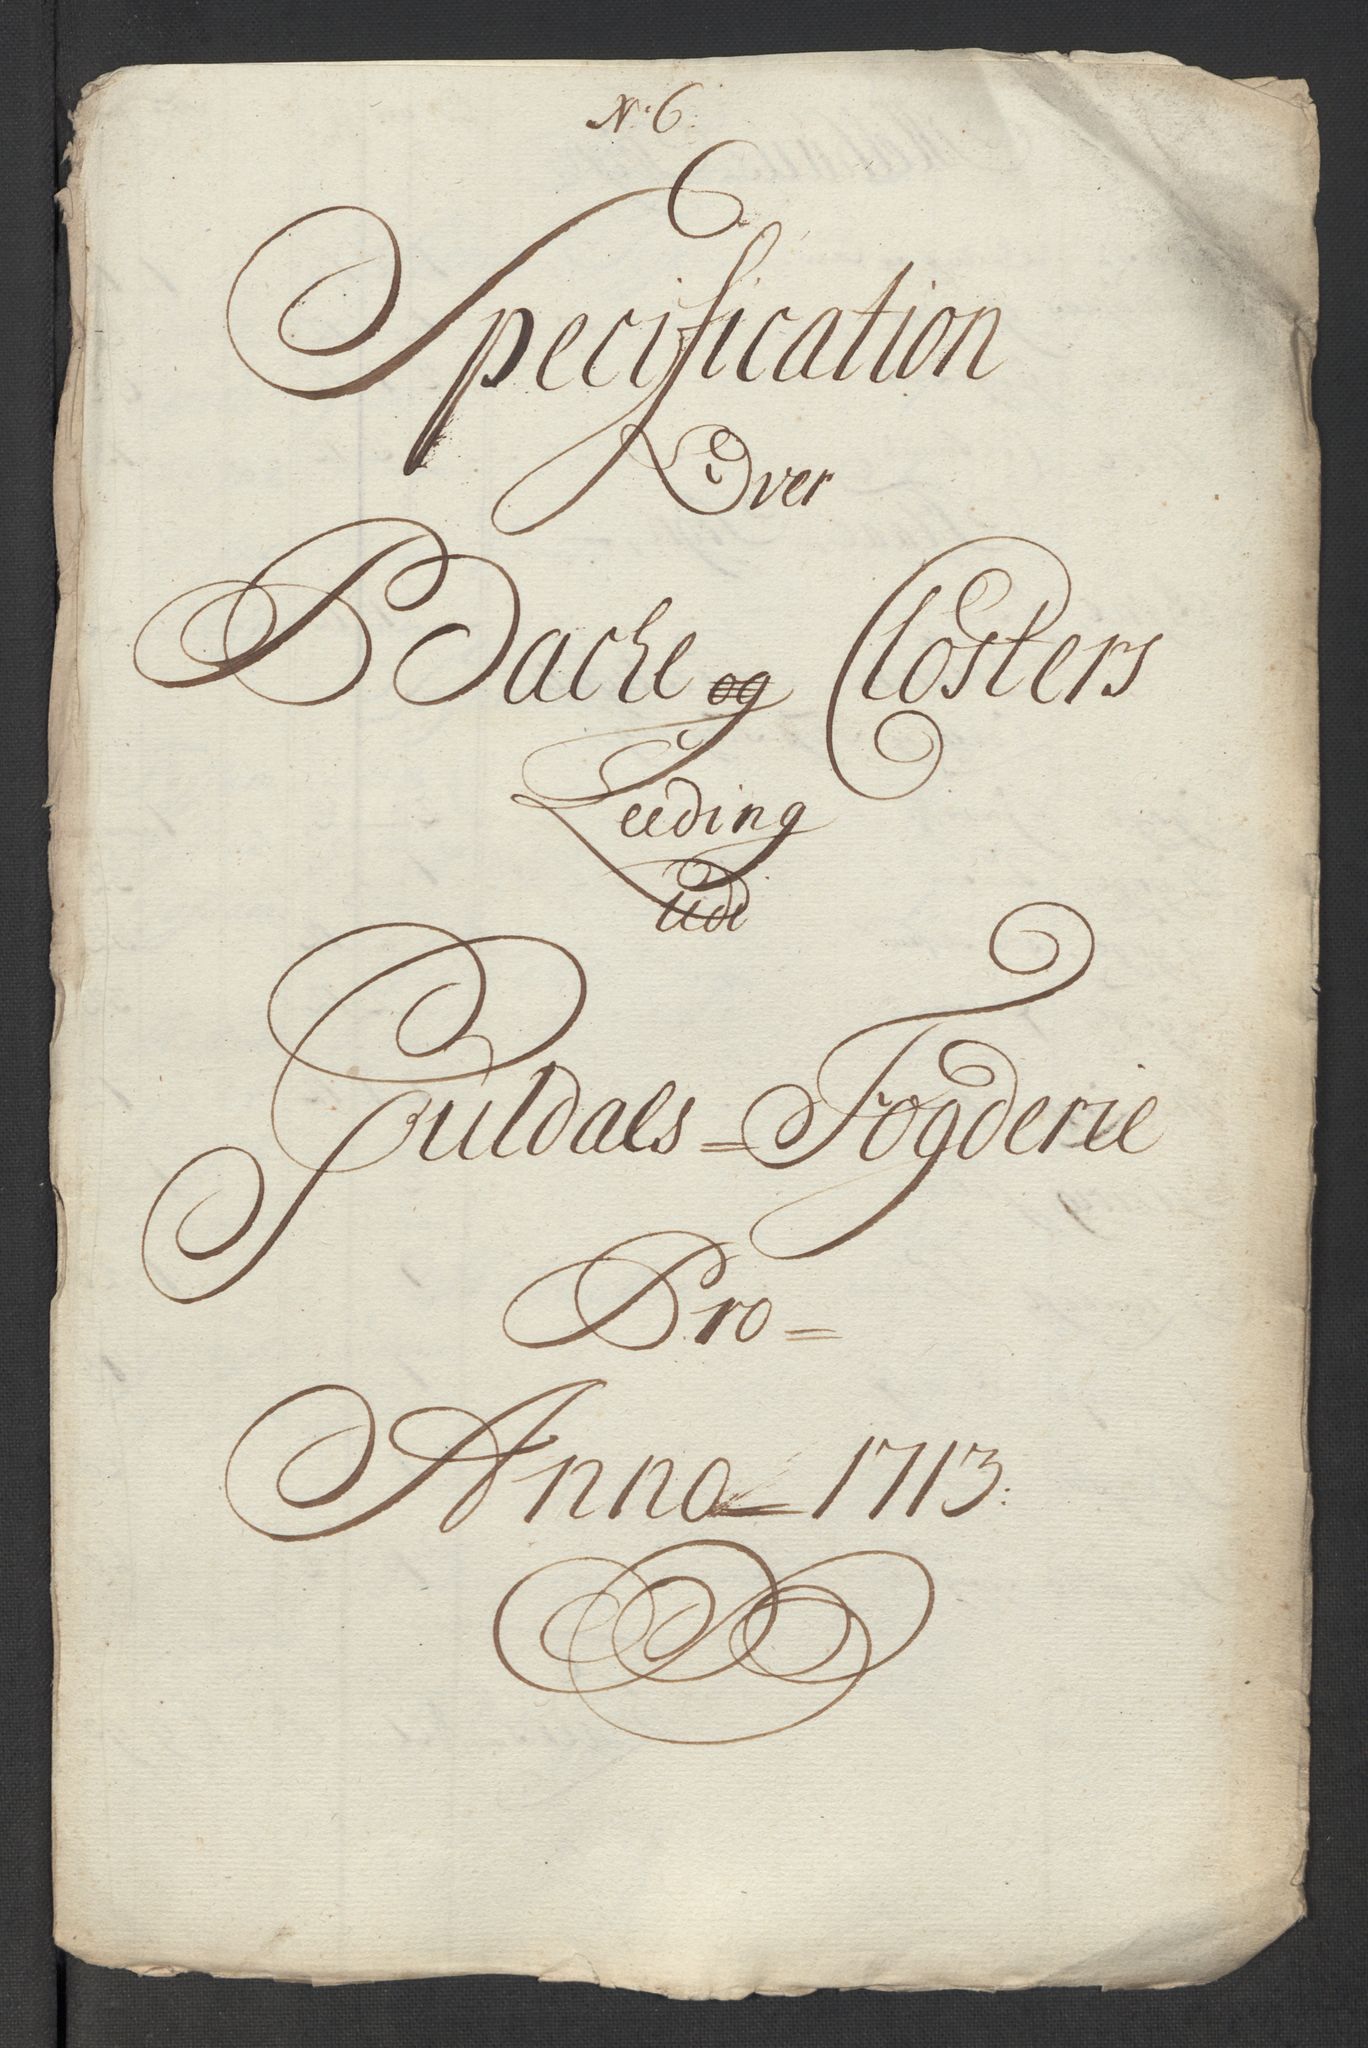 N: 6.
Specification
Over
Bache og Closters
Leeding
Udi
Guldals = Fogderie
Pro =
Anno = 1713.